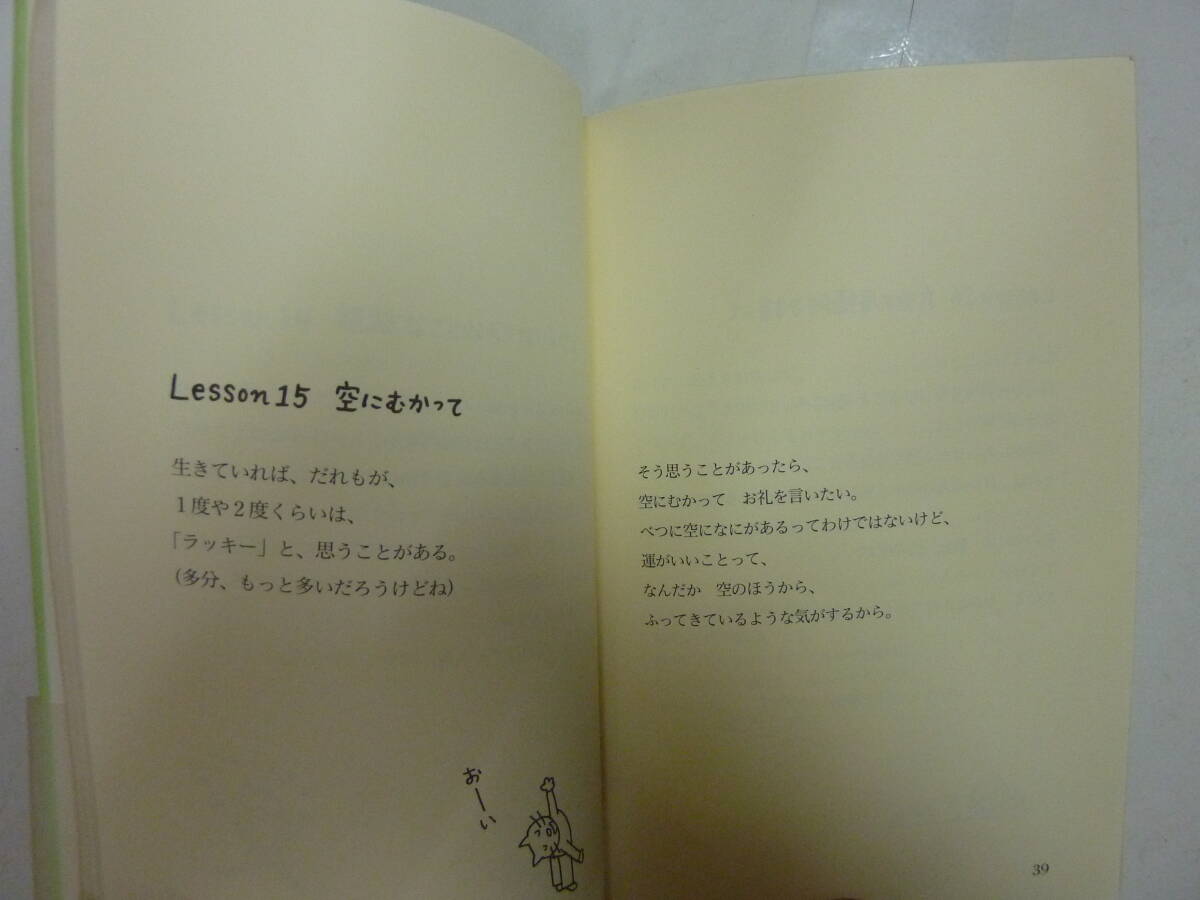 Lesson 15　空にむかって
生きていれば、だれもが、
１度や２度くらいは、
「ラッキー」と、思うことがある。
(多分、もっと多いだろうけどね)
おーい
そう思うことがあったら、
空にむかって　お礼を言いたい。
べつに空になにがあるってわけではないけど、
運がいいことって、
なんだか　空のほうから、
ふってきているような気がするから。
39